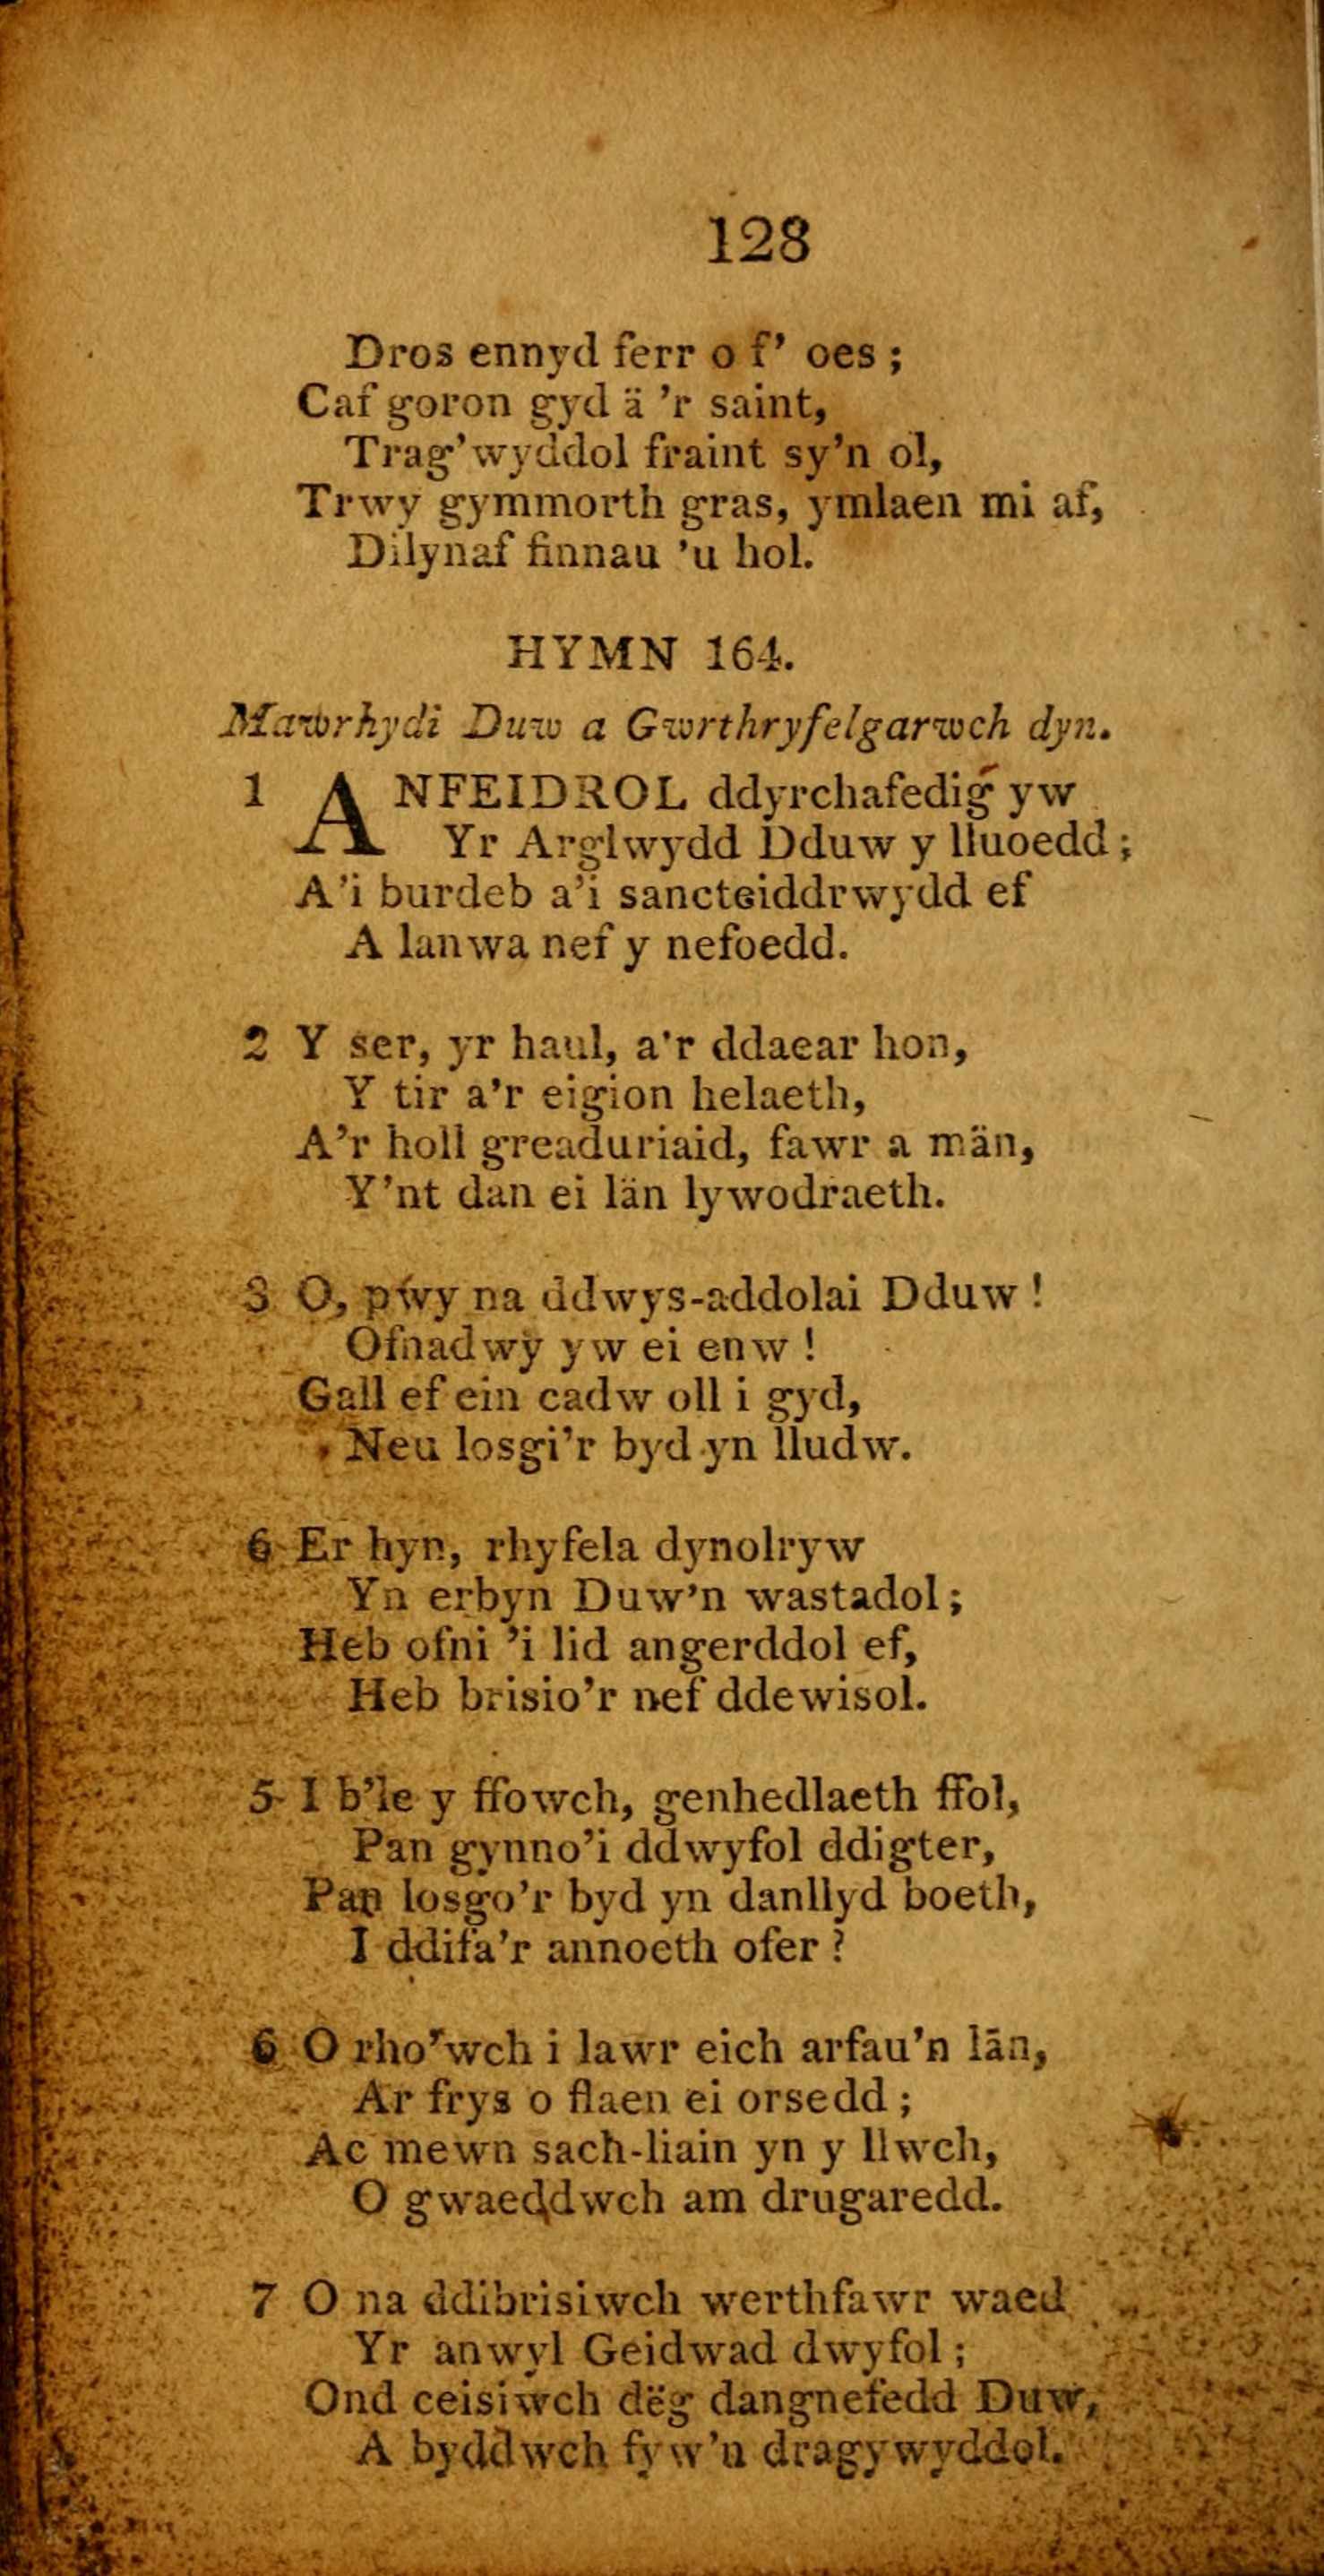 128
Dros ennyd ferr o f' oes ;
Caf goron gyd ä 'r saint,
Trag'wyddol fraint sy'n ol,
Trwy gymmorth gras, ymlaen mi af,
Dilynaf finnau 'u hol.
HYMN 164.
Mawrhydi Duw a Gwrthryfelgarwch dyn.
1 ANFEIDROL ddyrchafedig yw
Yr Arglwydd Dduw y lluoedd ;
A'i burdeb a'i sancteiddrwydd ef
A lanwa nef y nefoedd.
2 Y ser, yr haul, a'r ddaear hon,
Y tir a'r eigion helaeth,
A'r holl greaduriaid, fawr a män,
Y'nt dan ei län lywodraeth.
3 O, pwy na ddwys-addolai Dduw !
Ofnadwy yw ei enw !
Gall ef ein cadw oll i gyd,
Neu losgi'r byd yn lludw.
6 Er hyn, rhyfela dynolryw
Yn erbyn Duw'n wastadol ;
Heb ofni 'i lid angerddol ef,
Heb brisio'r nef ddewisol.
5 I b'le y ffowch, genhedlaeth ffol,
Pan gynno'i ddwyfol ddigter,
Pan losgo'r byd yn danllyd boeth,
I ddifa'r annoeth ofer ?
6 O rho'wch i lawr eich arfau'n län,
Ar frys o flaen ei orsedd ;
Ac mewn sach-liain yn y llwch,
O gwaeddwch am drugaredd.
7 O na ddibrisiwch werthfawr waed
Yr anwyl Geidwad dwyfol ;
Ond ceisiwch dëg dangnefedd Duw,
A byddwch fyw'n dragywyddol.